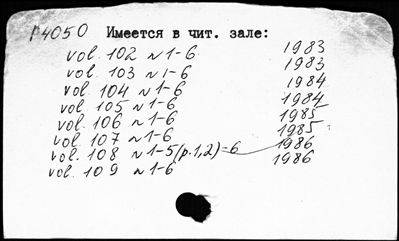 P4050 Имеется в чит. зале:
vol. 102 N 1-6 1983
vol. 103 N 1-6 1983
vol. 104 N 1-6 1984
vol. 105 N 1-6 1984
vol. 106 N 1-6 1985
vol. 107 N 1-6 1985
vol. 108 N 1-5(p.1,2)-6 1986
vol. 109 N 1-6 1986